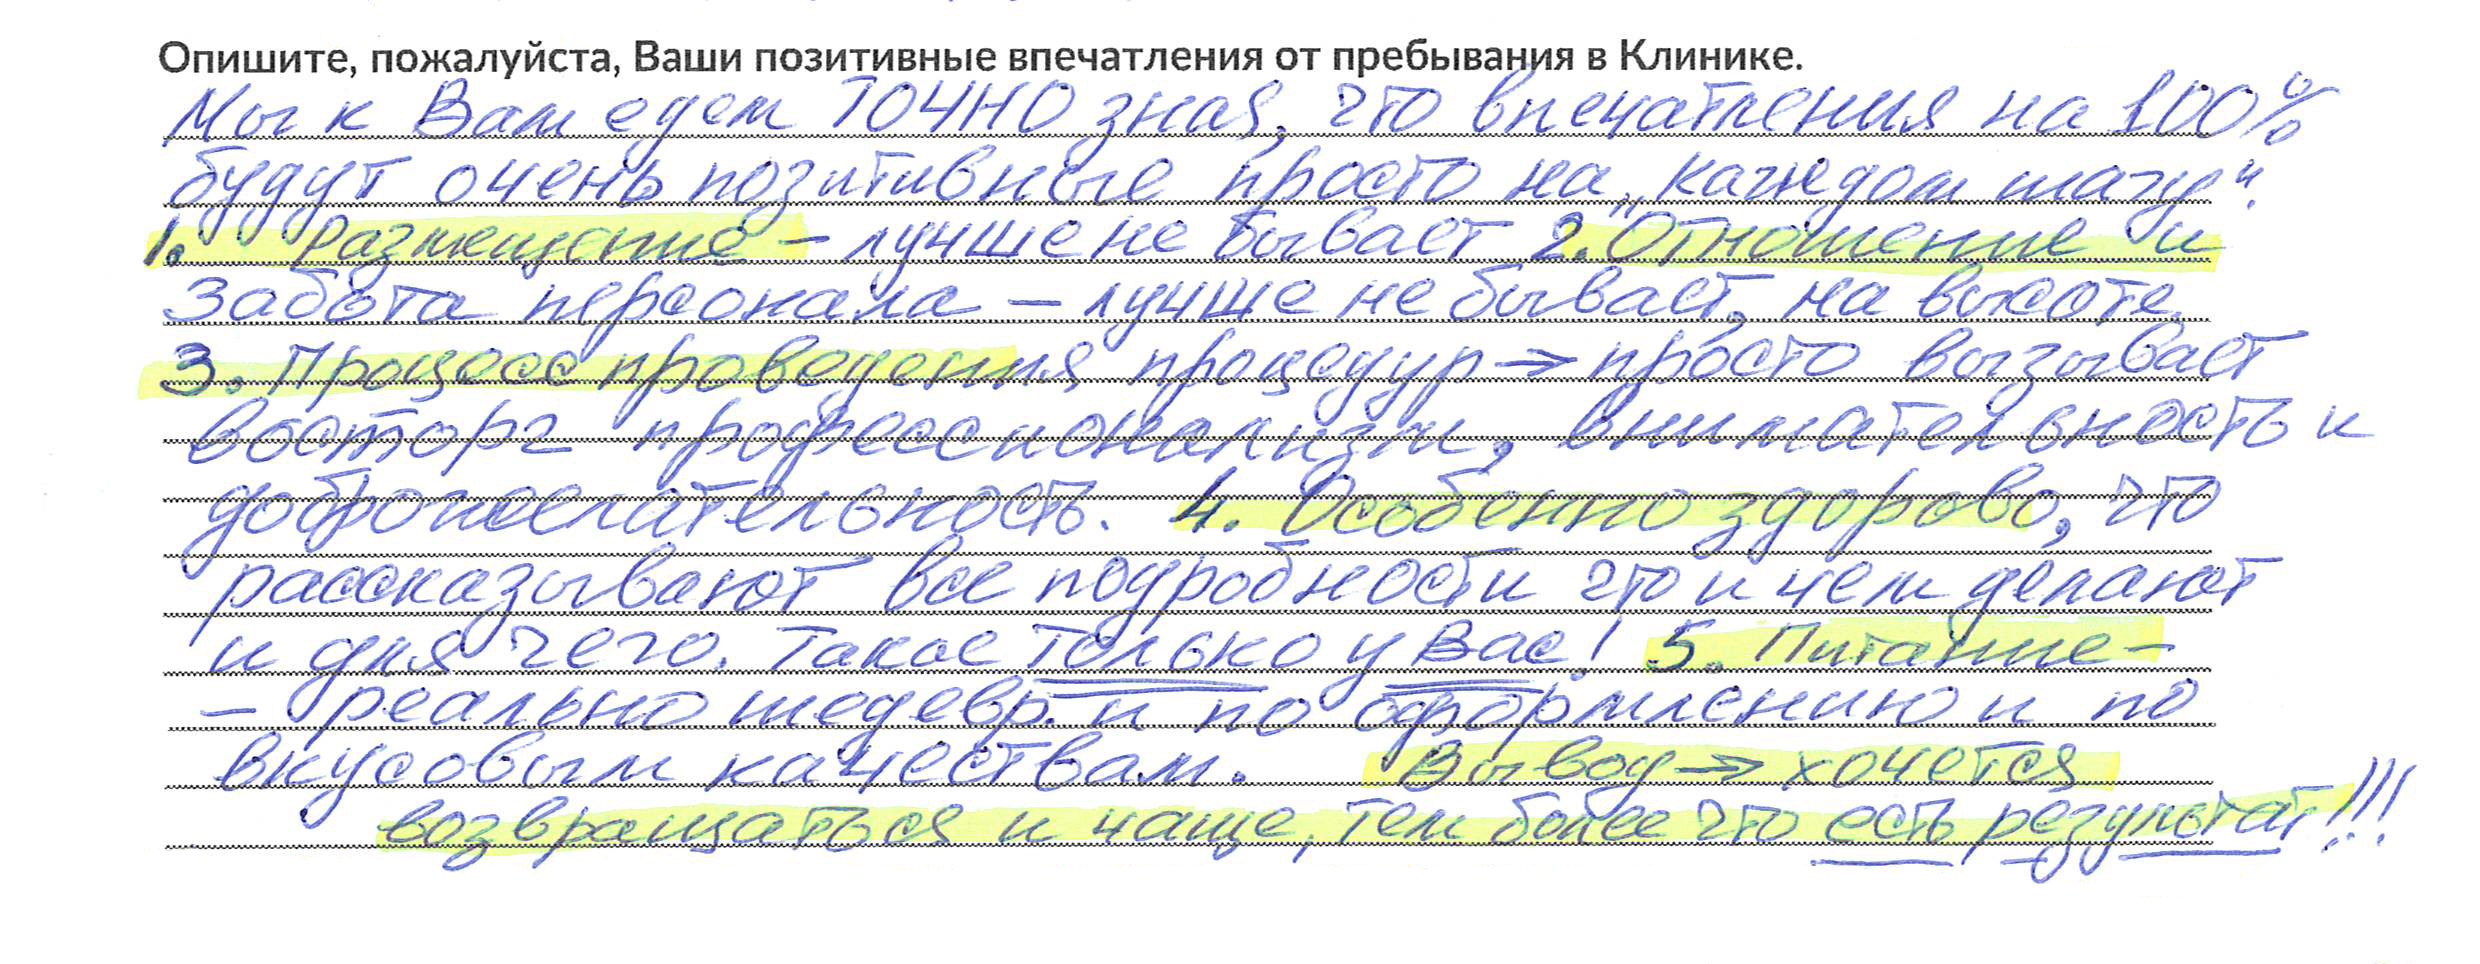 Опишите, пожалуйста, Ваши позитивные впечатления от пребывания в Клинике.
Мы к Вам едем ТОЧНО зная, что впечатления на 100%
будут очень позитивные просто на „каждом шагу“.
1. Размещение – лучше не бывает 2. Отношение и
забота персонала – лучше не бывает, на высоте.
3. Процесс проведения процедур → просто вызывает
восторг профессионализм, внимательность и
доброжелательность. 4. Особенно здорово, что
рассказывают все подробности что и чем делают
и для чего. Такое только у Вас! 5. Питание –
– реально шедевр и по оформлению и по
вкусовым качествам. Вывод → хочется
возвращаться и чаще, тем более что есть результат!!!